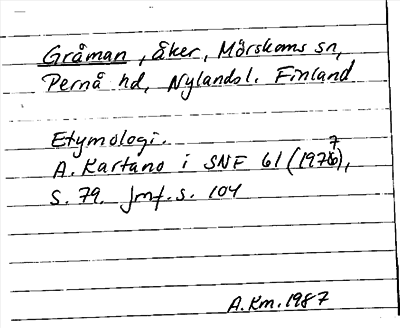 Gråman, åker, Mörskoms sn,
Pernå hd, Nylandsl. Finland
Etymologi.
A. Kartano i SNF 61 (1977),
s. 79. Jmf. s. 104
A.Km.1987